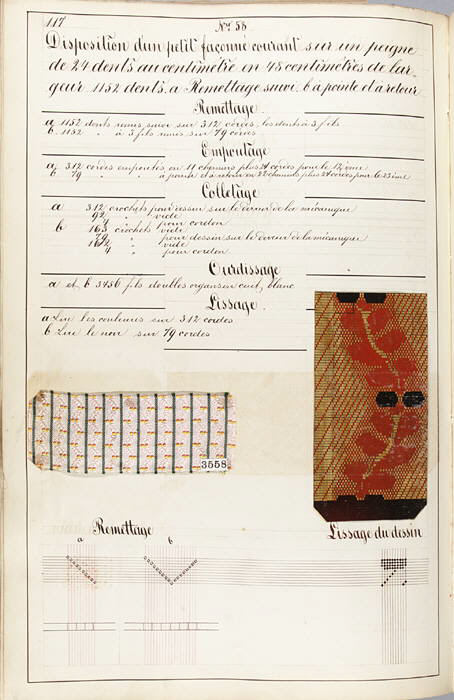 117
Nos 58
Disposition d'un petit façonné courant sur un peigne
de 24 dents au centimètre en 48 centimètres de lar-
geur 1152 dents. a Remettage suivi. b a pointe et a retour
Remettage
a 1152 dents remis suivi sur 312 cordes, les dents à 3 fils
b 1152 " à 3 fils remis sur 79 cordes
Empoutage
a 312 cordes empoutés en 11 chemins plus 24 cordes pour le 12ième
b 79 " à pointe et a retour en 22 chemins plus 24 cordes pour le 23ième
Colletage
a 312 crochets pour dessin sur le devant de la mécanique
92 " vide
4 " pour cordon
b 163 crochets vide
79 " pour dessin sur le devant de la mécanique
162 " vide
4 " pour cordon
Ourdissage
a et b 3456 fils doubles organsin cuit, blanc
Lissage
a Lire les couleurs sur 312 cordes
b Lire le noir sur 79 cordes
3558
Remettage
Lissage du dessin
a b